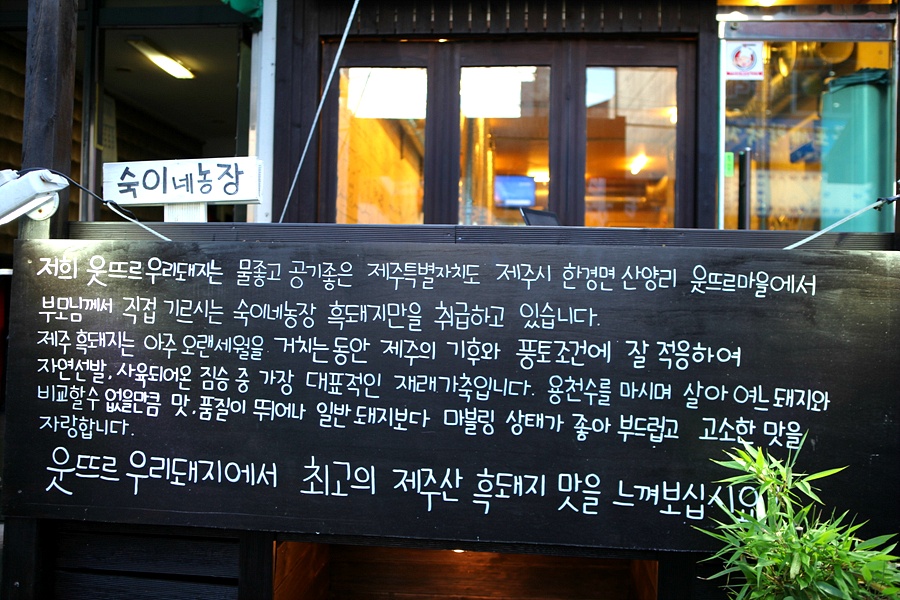 숙이네농장
저희 웃뜨르우리돼지는 물좋고 공기좋은 제주특별자치도 제주시 한경면 산양리 웃뜨르마을에서
부모님께서 직접 기르시는 숙이네농장 흑돼지만을 취급하고 있습니다.
제주흑돼지는 아주 오랜세월을 거치는동안 제주의 기후와 풍토조건에 잘 적응하여
자연선발, 사육되어온 짐승 중 가장 대표적인 재래가축입니다. 용천수를 마시며 살아 여느 돼지와
비교할수 없을만큼 맛, 품질이 뛰어나 일반돼지보다 마블링 상태가 좋아 부드럽고 고소한 맛을
자랑합니다.
웃뜨르우리돼지에서 최고의 제주산 흑돼지 맛을 느껴보십시오